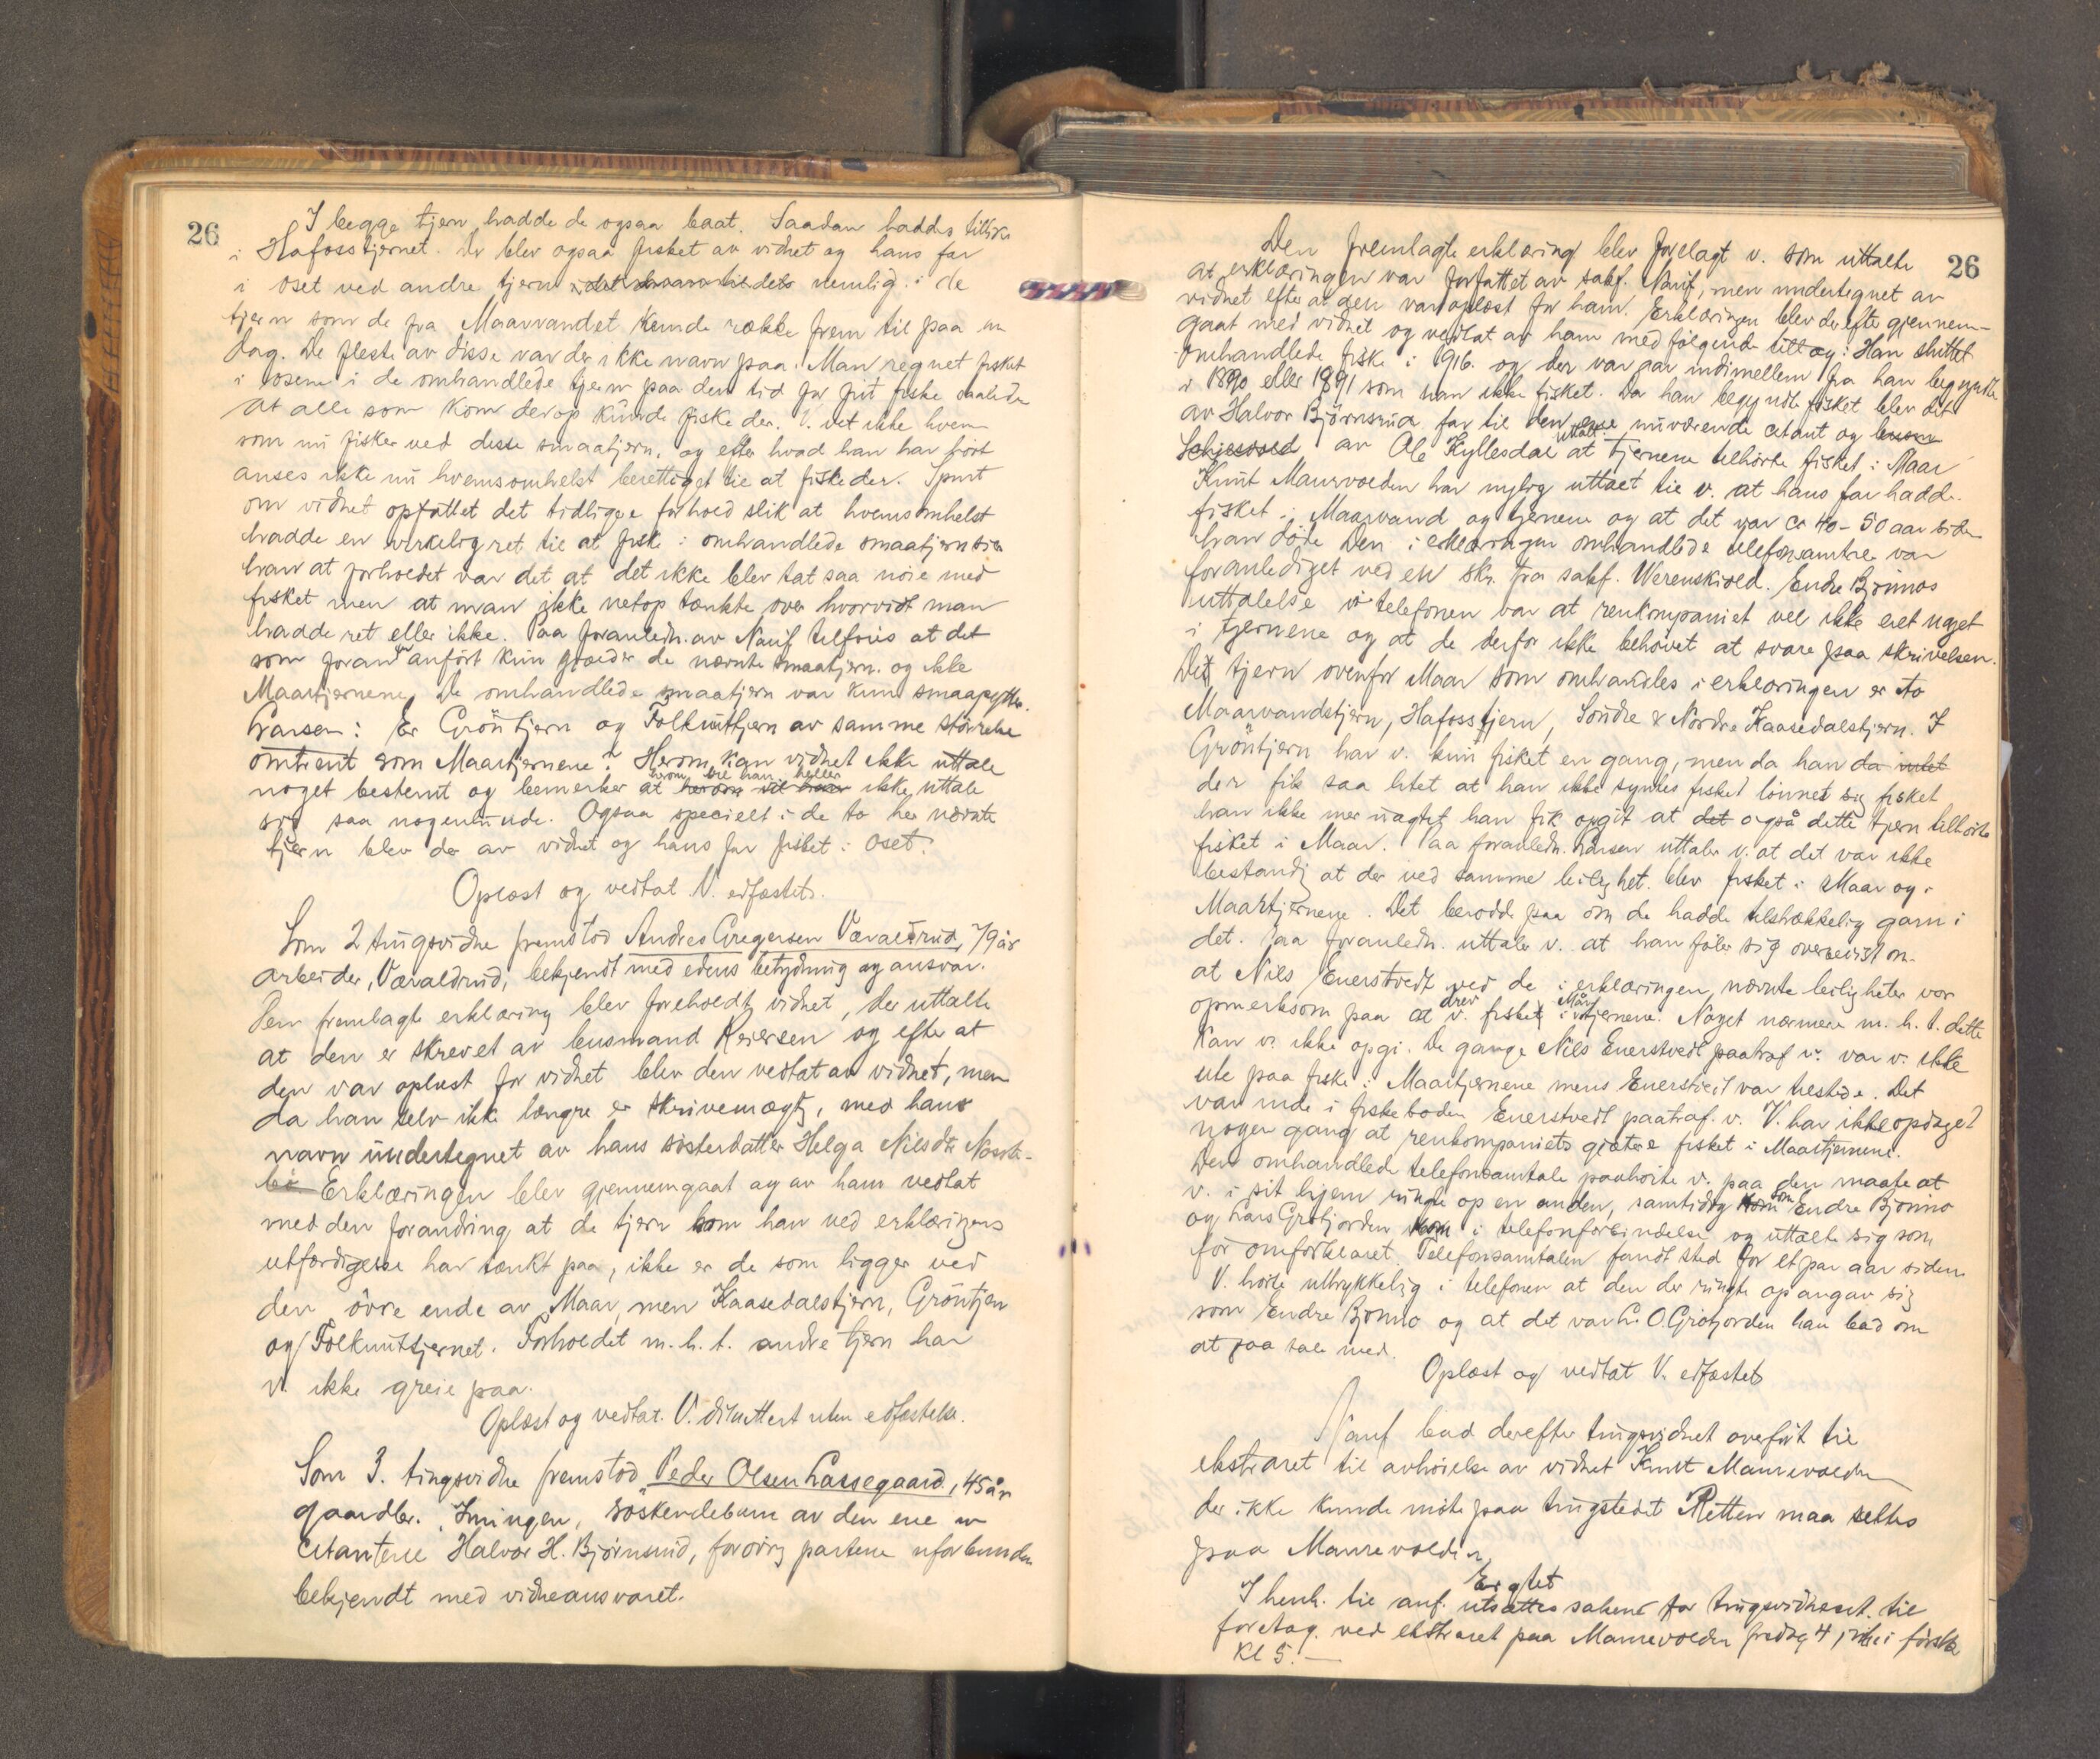 26
I begge tjern hadde de ogsaa baat. Saadan haddes tillike
i Hafosstjernet. Der blev ogsaa fisket av vidnet og hans far
i oset ved andre tjern nemlig i de
tjern som de fra Maarvandet kunde række frem til paa en
dag. De fleste av disse var der ikke navn paa. Man regnet fisket
i osene i de omhandlede tjern paa den tid for frit fiske saaledes
at alle som kom derop kunde fiske der. V. vet ikke hvem
som nu fisker ved disse smaatjern, og efter hvad han har hørt
anses ikke nu hvemsomhelst berettiget til at fiske der. Spurt
om vidnet opfattet det tidligere forhold slik at hvemsomhelst
hadde en virkelig ret til at fiske i omhandlede smaatjern sier
han at forholdet var det at det ikke blev tat saa nøie med
fisket men at man ikke netop tænkte over hvorvidt man
hadde ret eller ikke. Paa foranledn. av Nauf tilføies at det
som foran er anført kun gjælder de nævnte smaatjern og ikke
Maartjernene. De omhandlede smaatjern var kun smaapytter.
Larsen: Er Gröntjern og Folknuttjern av samme størrelse
omtrent som Maartjernene? Herom kan vidnet ikke uttale
noget bestemt og bemerker at herom vil han heller ikke uttale
sig saa nogenlunde. Ogsaa specielt i de to her nævnte
tjern blev der av vidnet og hans far fisket i oset.
Oplæst og vedtat V. edfæstet.
Som 2 tingsvidne fremstod Andres Gregersen Væraldrud, 79 år
arbeider, Væraldrud, bekjendt med edens betydning og ansvar.
Den fremlagte erklæring blev foreholdt vidnet, der uttalte
at den er skrevet av lensmand Reiersen og efter at
den var oplæst for vidnet blev den vedtat av vidnet, men
da han selv ikke længre er skrivemægtig, med hans
navn undertegnet av hans søsterdatter Helga Nilsdtr
Erklæringen blev gjennemgaat og av ham vedtat
med den forandring at de tjern som han ved erklæringens
utfærdigelse har tænkt paa, ikke er de som ligger ved
den øvre ende av Maar, men Kaasedalstjern, Gröntjern
og Folknuttjernet. Forholdet m.h.t. andre tjern har
v. ikke greie paa.
Oplæst og vedtat. V. dimittert uten edfæstelse.
Som 3. tingsvidne fremstod Peder Olsen Lassegaard, 45 år
gaardbr. Imingen, søskendebarn av den ene av
citantene Halvor H. Björnsrud, forøvrig partene uforbunden
bekjendt med vidneansvaret.
26
Den fremlagte erklæring blev forelagt v. som uttalte
at erklæringen var forfattet av sakf. Nauf, men undertegnet av
vidnet efter at den var oplæst for ham. Erklæringen blev derefter gjennem-
gaat med vidnet og vedtat av ham med følgende tillæg: Han sluttet
omhandlede fiske i 1916. og der var aar indimellem fra han begyndte
i 1890 eller 1891 som han ikke fisket. Da han begyndte fisket blev det
av Halvor Björnsrud far til den ene nuværende citant og
av Ole Kyllesdal uttalt at tjernene tilhörte fisket i Maar
Knut Maurvolden har nylig uttalt til v. at hans far hadde
fisket i Maarvand og tjernene og at det var ca 40-50 aar siden
han döde. Den i erklæringen omhandlede telefonsamtale var
foranlediget ved en skr. fra sakf. Werenskiold. Endre Bjönnos
uttalelse i telefonen var at renkompaniet vel ikke eiet noget
i tjernene og at de derfor ikke behövet at svare paa skrivelsen.
Det tjern ovenfor Maar som omhandles i erklæringen er to
Maarvandstjern, Hafosstjern, Söndre & Nordre Kaasedalstjern. I
Gröntjern har v. kun fisket en gang, men da han da intet
der fik saa litet at han ikke syntes fisket lönnet sig fisket
han ikke mer uagtet han fik opgit at det også dette tjern tilhörte
fisket i Maar. Paa foranledn. Larsen uttaler v. at det var ikke
bestandig at der ved samme leilighet blev fisket i Maar og i
Maartjernene. Det berodde paa om de hadde tilstrækkelig garn i
det. Paa foranledn. uttaler v. at han føler sig overbevist om
at Nils Enerstvedt ved de i erklæringen nævnte leiligheter var
opmerksom paa at v. drev fisket i Mårtjernene. Noget nærmere m.h.t. dette
kan v. ikke opgi. De gange Nils Enerstvedt paatraf v. var v. ikke
ute paa fiske i Maartjernene mens Enerstvedt var tilstede. Det
var inde i fiskeboden Enerstvedt paatraf v. V. har ikke opdaget
nogen gang at renkompaniets gjætere fisket i Maartjernene.
Den omhandlede telefonsamtale paahørte v. paa den maate at
v. i sit hjem ringte op en anden, samtidig som Endre Bjönno
og Lars Grøfjorden kom i telefonforbindelse og uttalte sig som
før omforklaret. Telefonsamtalen fandt sted for et par aar siden.
V. hørte uttrykkelig i telefonen at den der ringte op angav sig
som Endre Bjönno og at det var L. O. Grøfjorden han bad om
at faa tale med.
Oplæst og vedtat V. edfæstet
Nauf bad derefter tingsvidnet overført til
ekstraret til avhørelse av vidnet Knut Maurevolden
der ikke kunde møte paa tingstedet Retten maa settes
paa Maurevolden.
Eragtet
I henh. til anf. utsættes saken for tingsvidneset. til
foretag. ved ekstraret paa Maurevolden fredag 4 juli førstk
Kl 5.—